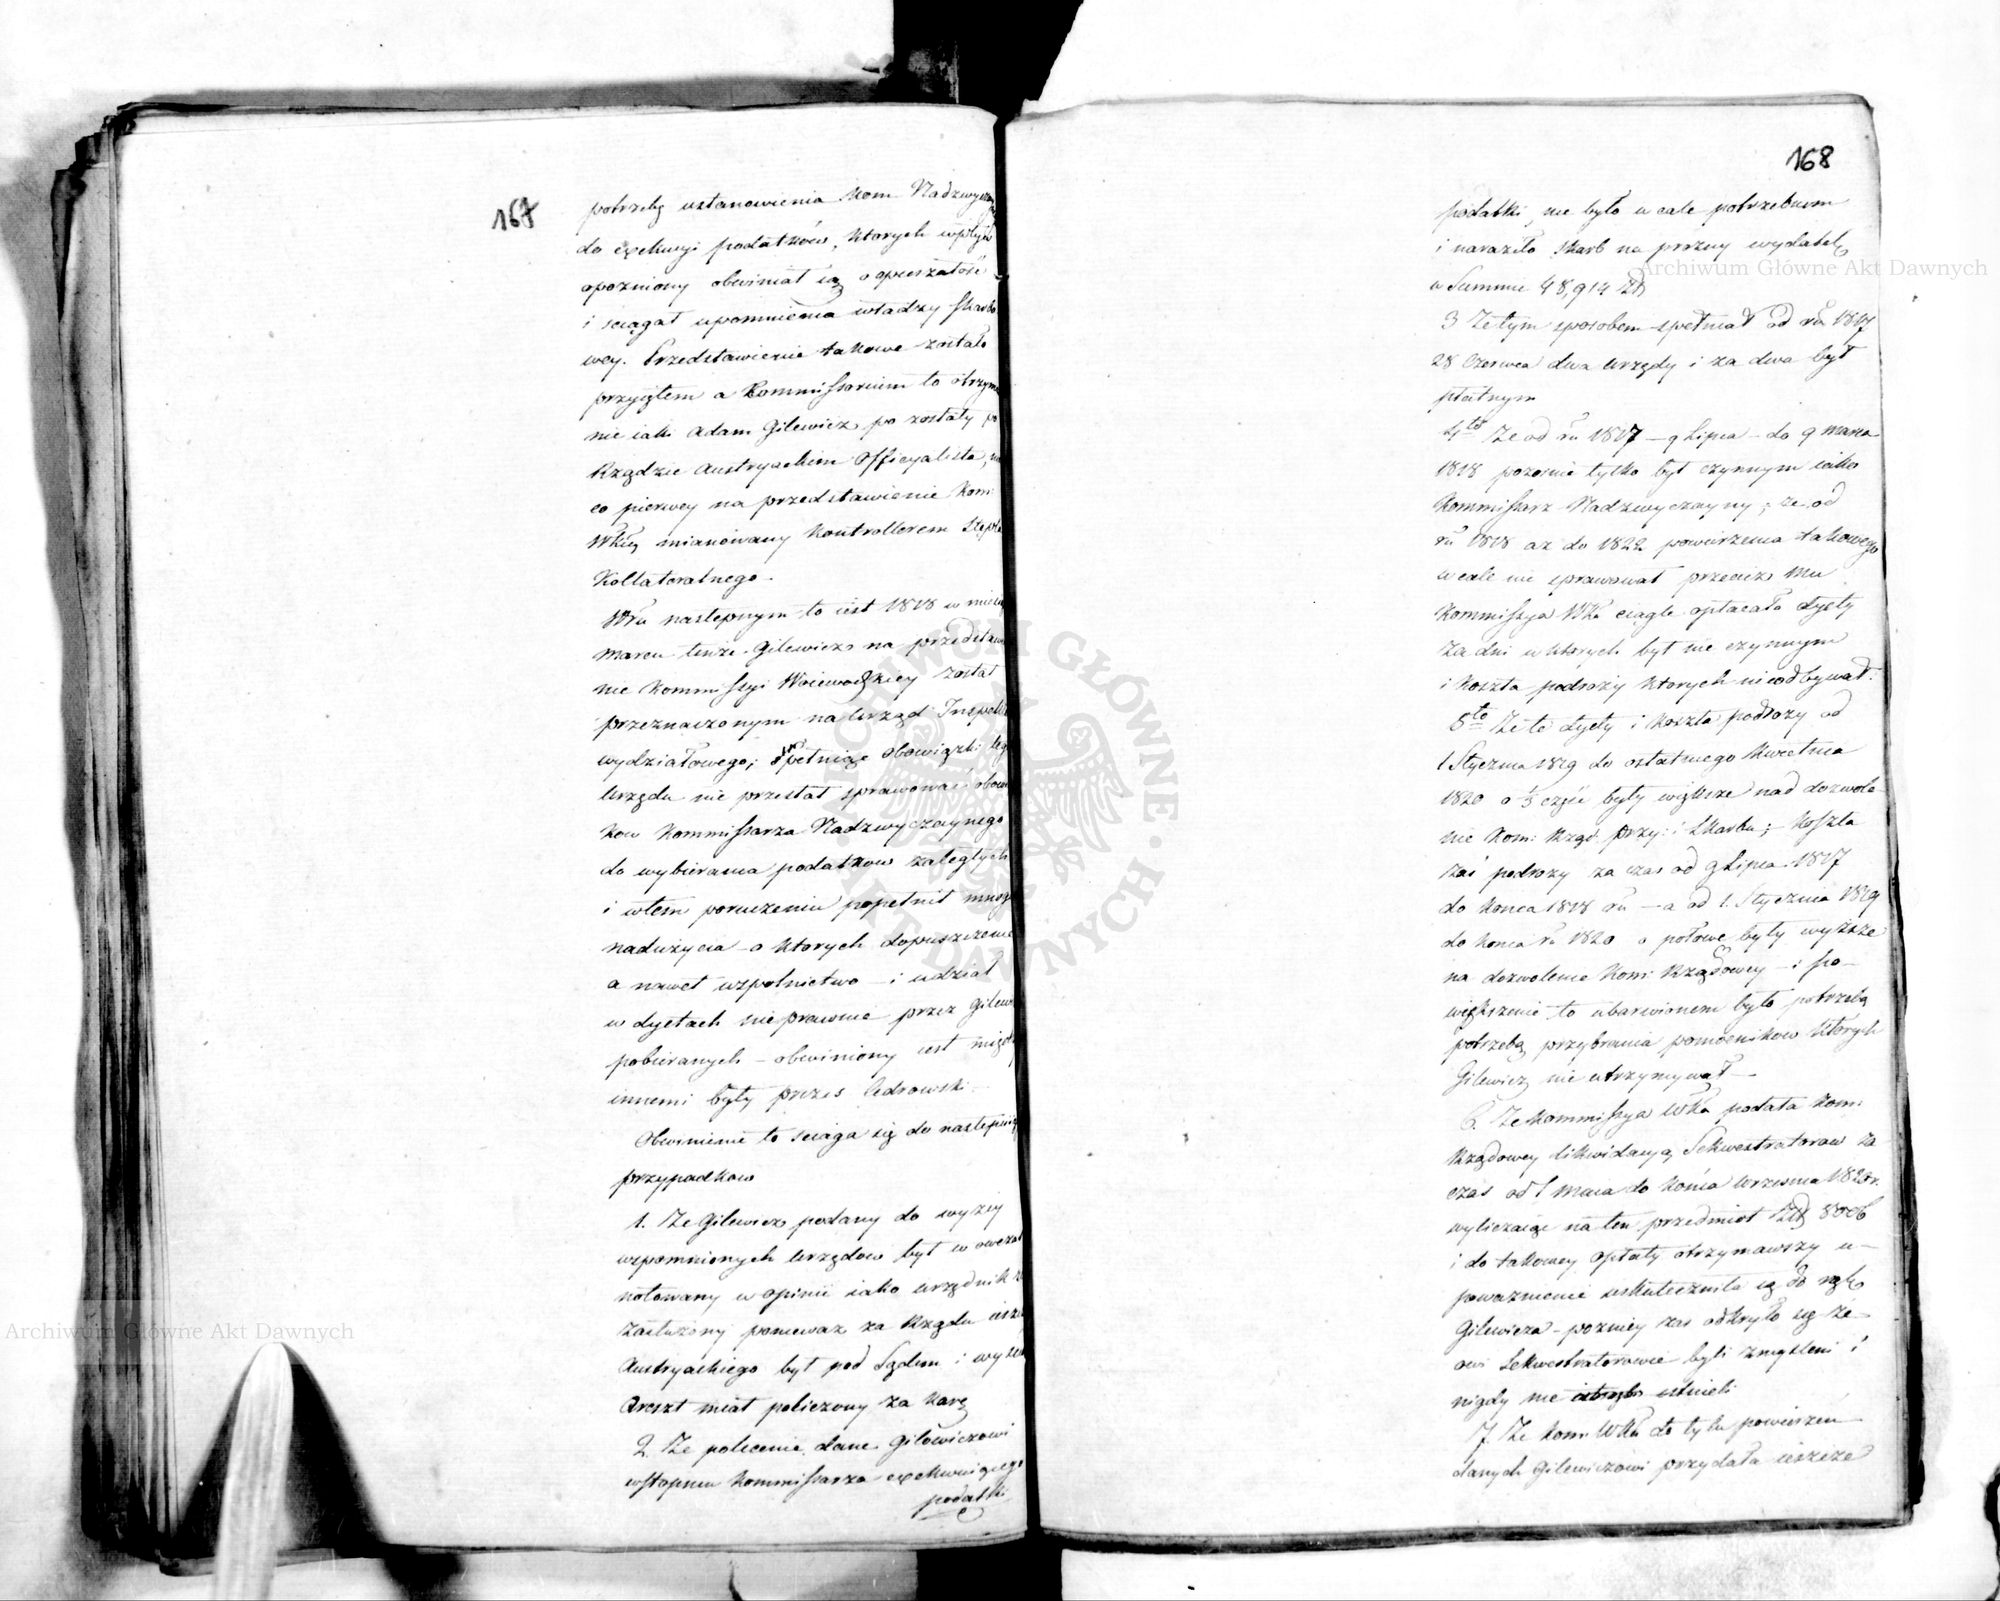 167
potrzebę ustanowienia Kom Nadzwyczay
do exekucyi podatków, których wpływ
opozniony obwiniał ią o opieszałość
i sciągał upomnienia władzy skarbo
wey. Przedstawienie takowe zostało
przyiętem a Kommissorium to otrzyma
nie iaki Adam Gilewicz po zostały po
Rządzie Austryackim Officyalista,
co pierwey na przedstawienie Kom:
WKiey mianowany Kontrollerem Stępla
Kollateralnego.
W ru następnym to iest 1818 w miesią
Marcu tenże Gilewicz na przedstawie
nie Kommissyi Woiewodzkiey został
przeznaczonym na Urząd Inspekto
wydziałowego; spełniąc obowiązki teg
Urzędu nie przestał sprawować obowi
kow Kommissarza Nadzwyczaynego
do wybierania podatkow zaległych
i wtem poruczeniu popełnił mnogi
nadużycia – o ktorych dopuszczenie
a nawet wspolnictwo – i udział
w dyetach nieprawnie przez Gilewi
pobieranych – obwiniony iest między
innemi były prezes Cedrowski
Obwinienie to sciąga się do następuią
przypadkow
1. Ze Gilewicz podany do wyzey
wspomnionych urzędow był w owczas
notowany w opinii iako urzędnik
zasłużony ponieważ za Rządu ieszcz
Austryackiego był pod Sądem i wysz
Areszt miał policzony za karę
2. Ze polecenie dane Gilewiczowi
wstopniu Kommissarza exekwuiącego
podatki
168
podatki, nie było w cale potrzebnem
i naraziło skarb na prozny wydatek
w Summie 48,914 Zł
3 Ze tym sposobem spełniał od ru 1817
28 Czerwca dwa urzędy i za dwa był
płatnym
4to Ze od ru 1817 – 9 Lipca – do 9 Marca
1818 pozornie tylko był czynnym iako
Kommissarz Nadzwyczayny; ze od
ru 1818 az do 1822 powierzenia takowego
w cale nie sprawował przecież mu
Kommissya WKa ciągle opłacała dyety
za dni w ktorych był nie czynnym
i koszta podroży ktorych nieodbywał.
5to Ze te dyety i koszta podroży od
1 Stycznia 1819 do ostatniego Kwietnia
1820 o 1/3 część były większe nad dozwole
nie Kom: Rząd: Przy: i Skarbu; – koszta
zaś podroży za czas od 9 Lipca 1817
do konca 1818 ru – a od 1. Stycznia 1819
do konca ru 1820 o połowę były wyższe
na dozwolenie Kom: Rządowey – i po–
większenie to ubarwionem było potrzebą
potrzebą przybrania pomocnikow ktorych
Gilewicz nie utrzymywał –
6. Ze Kommissya WKa podała Kom:
Rządowey likwidacyą Sekwestratorow za
czas od 1 Maia do końca Września 1820 r.
wyliczaiąc na ten przedmiot Złł 8006
i do takowey opłaty otrzymawszy u–
poważnienie uskuteczniła ią do rąk
Gilewicza – poźniey zas odkryło się że
owi Sekwestratorowie byli zmysleni i
nigdy nie istnieli
7. Ze Kom: WKa do tylu powierzeń
danych Gilewiczowi przydała ieszcze
Archiwum Główne Akt Dawnych
Archiwum Główne Akt Dawnych
ARCHIWUM GŁÓWNE AKT DAWNYCH